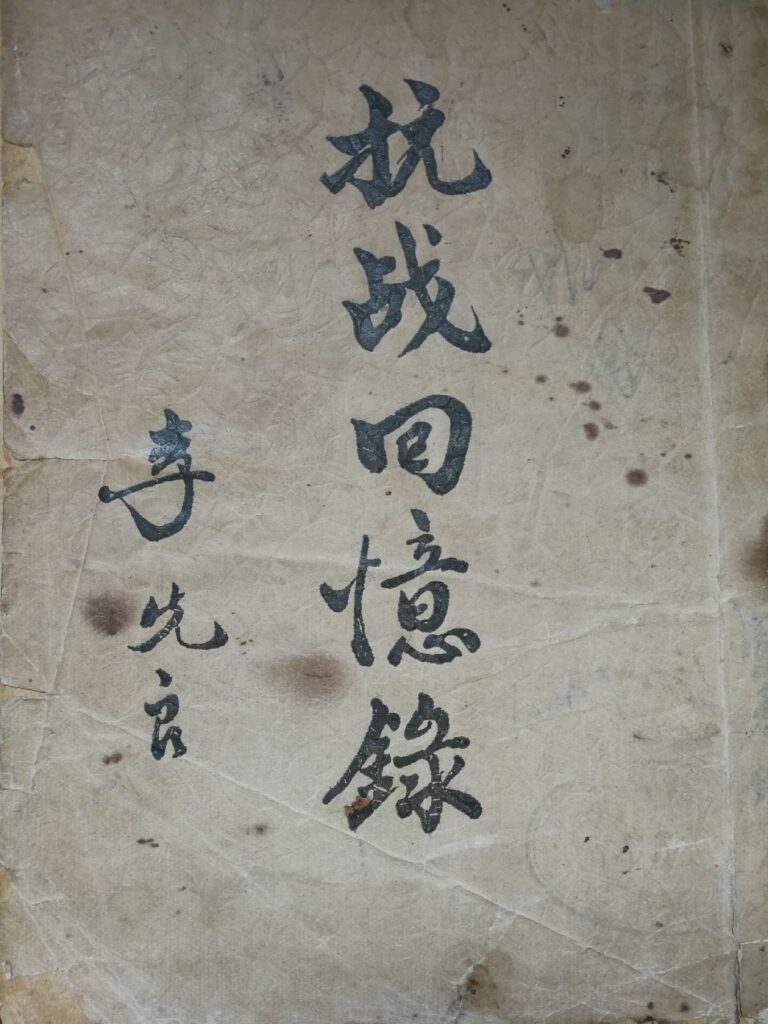 抗战回憶錄
李先良